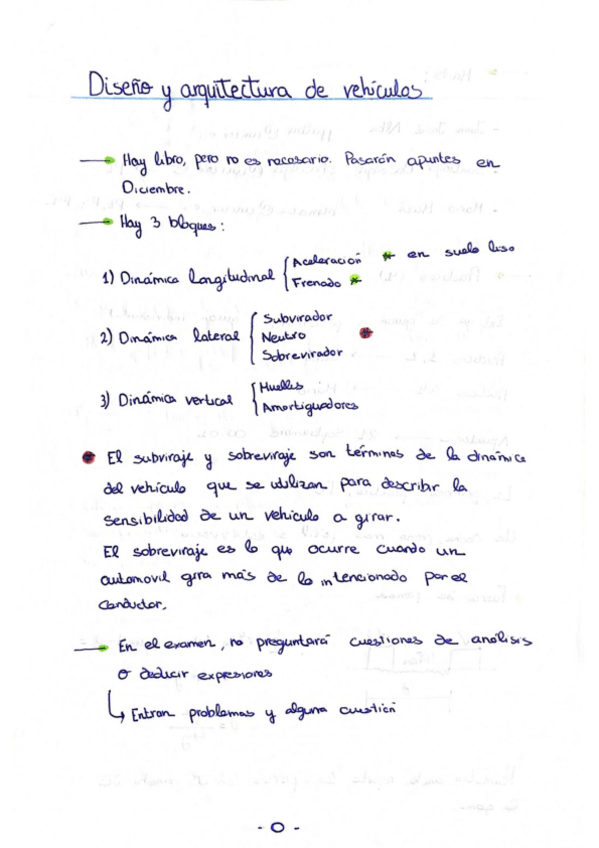 Diseño y arquitectura de vehículos
→ Hay libro, pero no es necesario. Pasarán apuntes en
Diciembre.
→ Hay 3 bloques:
1) Dinámica longitudinal { Aceleración * en suelo liso
Frenado *
2) Dinámica lateral { Subvirador
Neutro *
Sobrevirador
3) Dinámica vertical { Muelles
Amortiguadores
* El subviraje y sobreviraje son términos de la dinámica
del vehículo que se utilizan para describir la
sensibilidad de un vehículo a girar.
El sobreviraje es lo que ocurre cuando un
automovil gira más de lo intencionado por el
conductor.
→ En el examen, no preguntará cuestiones de análisis
o deducir expresiones
↳ Entran problemas y alguna cuestión
- 0 -